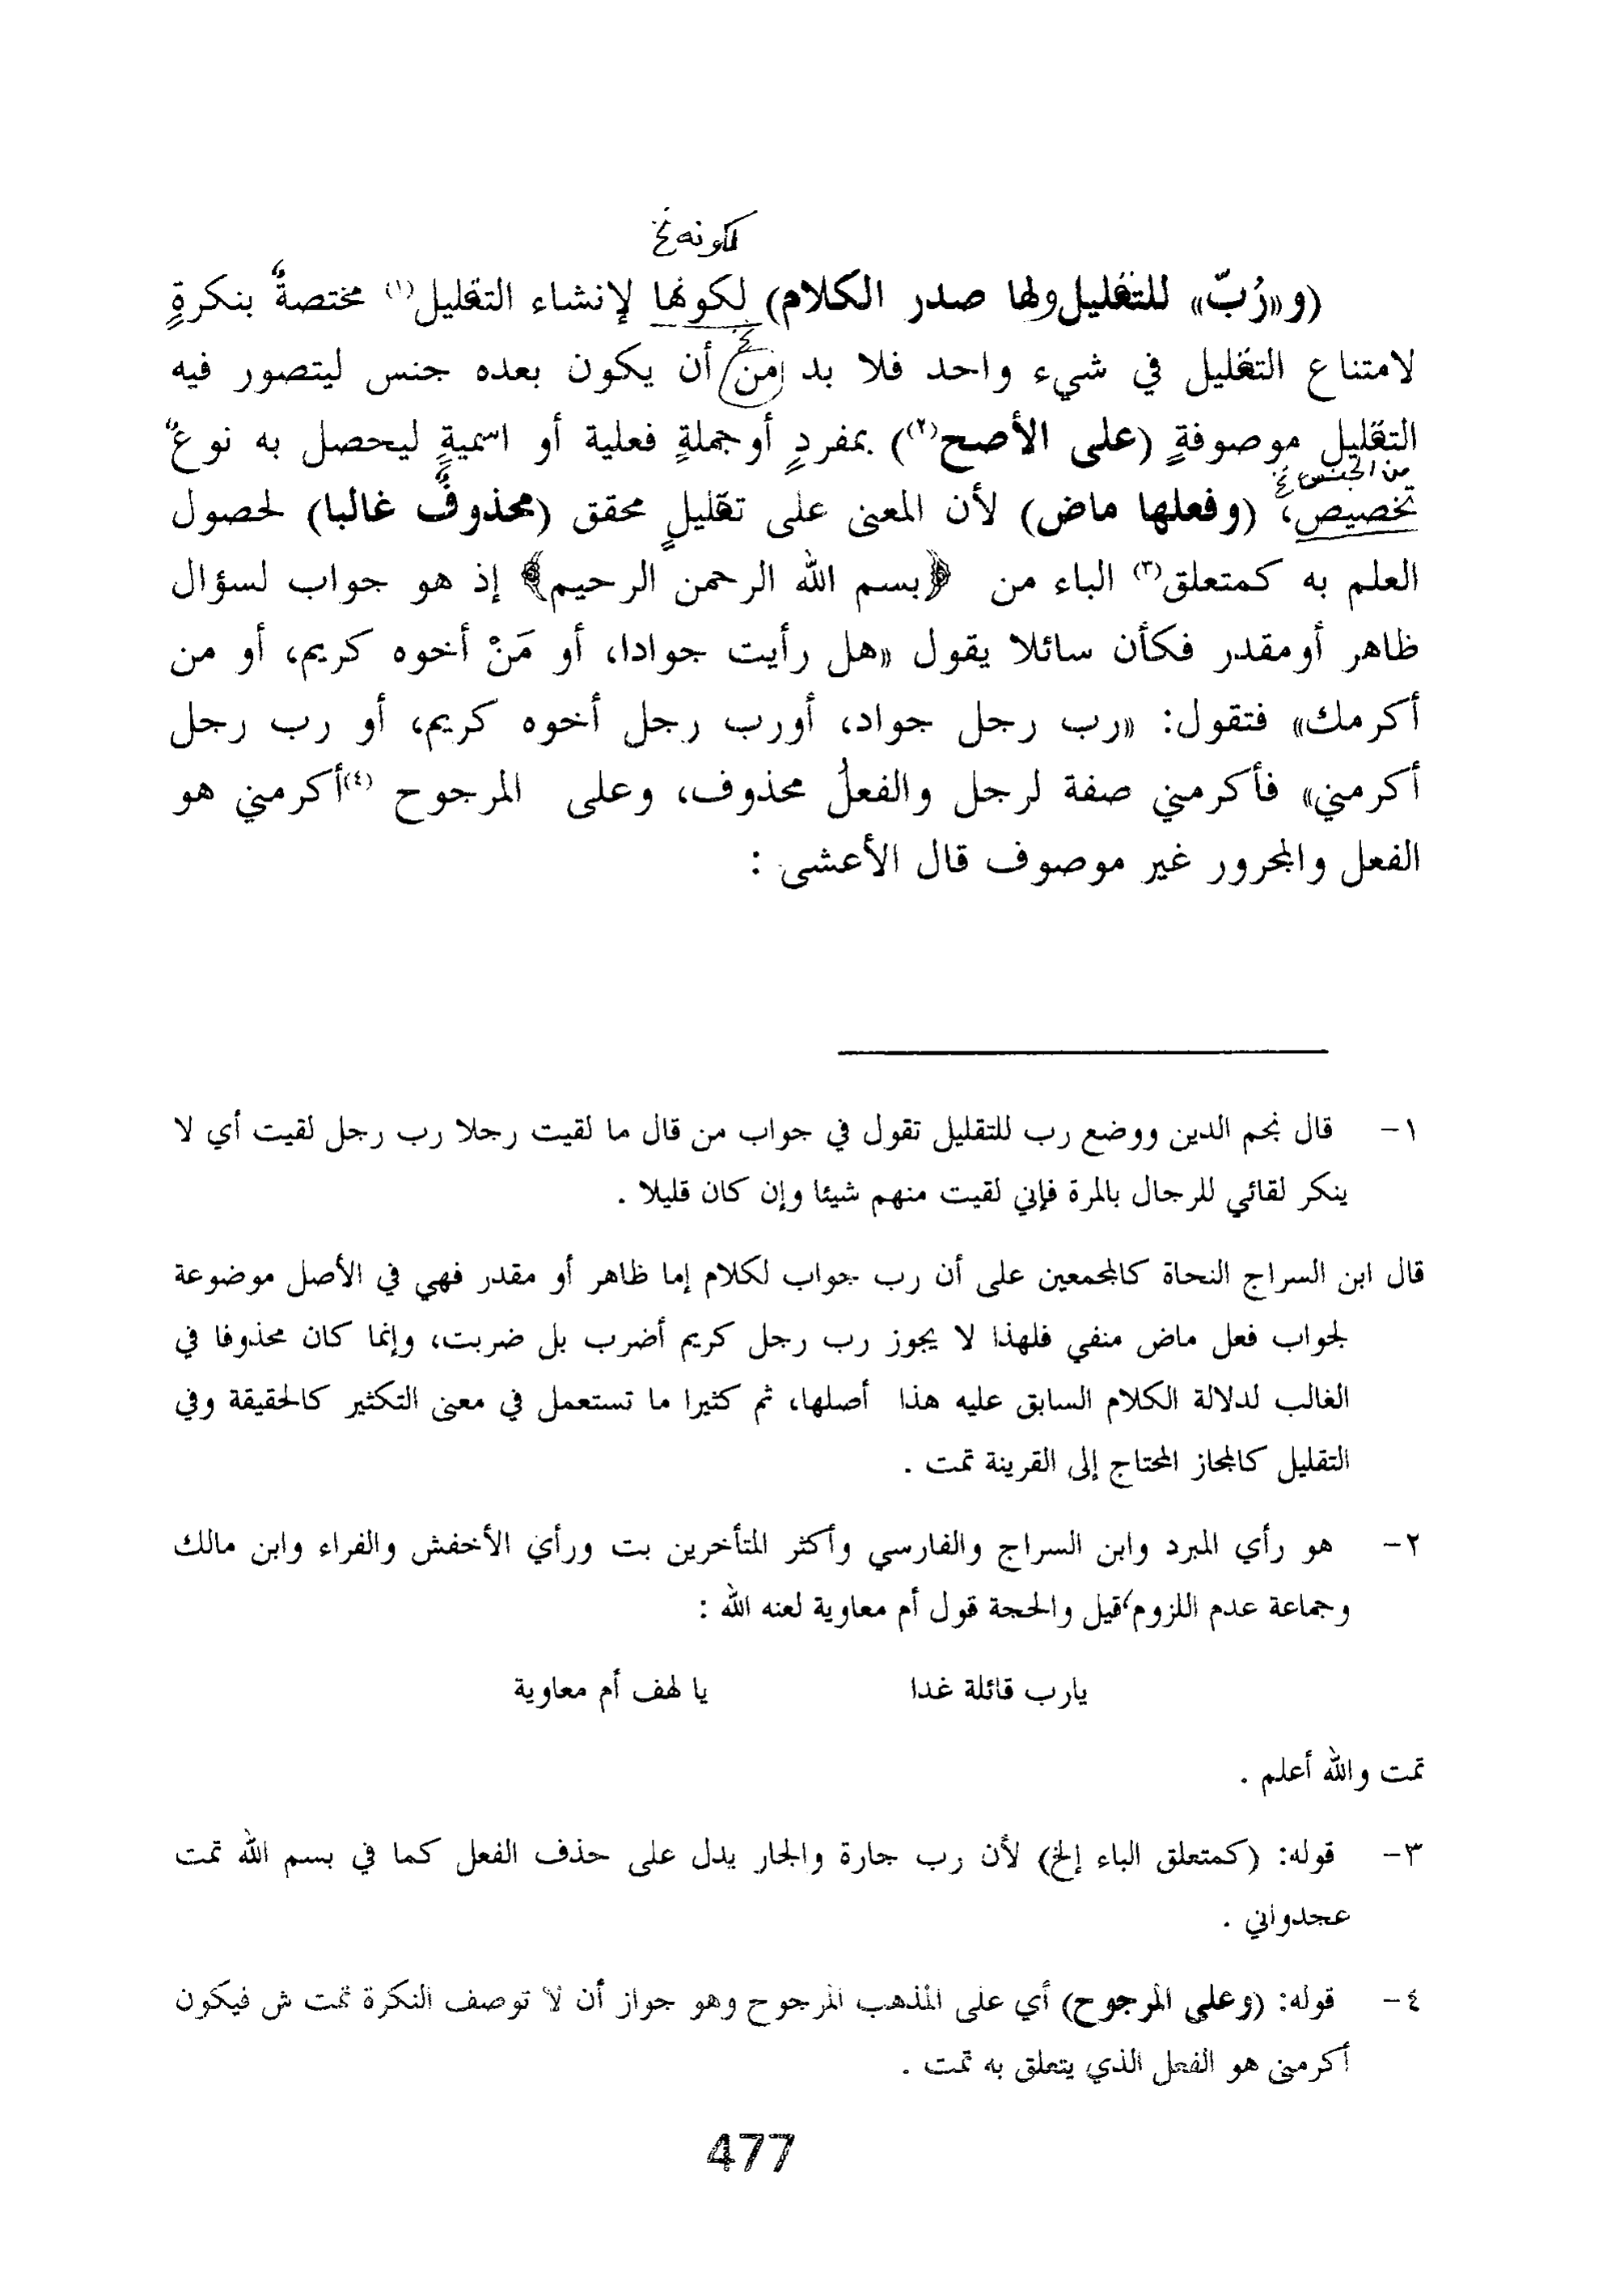 لكونه نخ
(و«رُبّ» للتقليل ولها صدر الكلام) لكونها لإنشاء التقليل(١) مختصةٌ بنكرةٍ
لامتناع التقليل في شيء واحد فلا بد من أن يكون بعده جنس ليتصور فيه
التقليل موصوفةٍ (على الأصح(٢)) بمفردٍ أوجملةٍ فعلية أو اسميةٍ ليحصل به نوعٌ
من الجنس نخ
تخصيص، (وفعلها ماض) لأن المعنى على تقليلٍ محقق (محذوفٌ غالبا) لحصول
العلم به كمتعلق(٣) الباء من ﴿بسم الله الرحمن الرحيم﴾ إذ هو جواب لسؤال
ظاهر أومقدر فكأن سائلا يقول «هل رأيت جوادا، أو مَنْ أخوه كريم، أو من
أكرمك» فتقول: «رب رجل جواد، أورب رجل أخوه كريم، أو رب رجل
أكرمني» فأكرمني صفة لرجل والفعلُ محذوف، وعلى المرجوح (٤)أكرمني هو
الفعل والمجرور غير موصوف قال الأعشى :
١- قال نجم الدين ووضع رب للتقليل تقول في جواب من قال ما لقيت رجلا رب رجل لقيت أي لا
ينكر لقائي للرجال بالمرة فإني لقيت منهم شيئا وإن كان قليلا .
قال ابن السراج النحاة كالمجمعين على أن رب جواب لكلام إما ظاهر أو مقدر فهي في الأصل موضوعة
لجواب فعل ماض منفي فلهذا لا يجوز رب رجل كريم أضرب بل ضربت، وإنما كان محذوفا في
الغالب لدلالة الكلام السابق عليه هذا أصلها، ثم كثيرا ما تستعمل في معنى التكثير كالحقيقة وفي
التقليل كالمجاز المحتاج إلى القرينة تمت .
٢- هو رأي المبرد وابن السراج والفارسي وأكثر المتأخرين بت ورأي الأخفش والفراء وابن مالك
وجماعة عدم اللزوم، قيل والحجة قول أم معاوية لعنه الله :
يارب قائلة غدا يا لهف أم معاوية
تمت والله أعلم .
٣- قوله: (كمتعلق الباء إلخ) لأن رب جارة والجار يدل على حذف الفعل كما في بسم الله تمت
عجدواني .
٤- قوله: (وعلى المرجوح) أي على المذهب المرجوح وهو جواز أن لا توصف النكرة تمت ش فيكون
أكرمني هو الفعل الذي يتعلق به تمت .
477